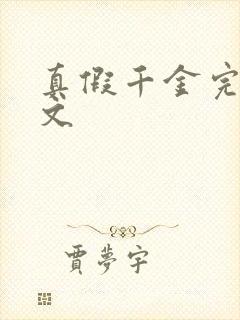 真假千金完
文
贾夢宇